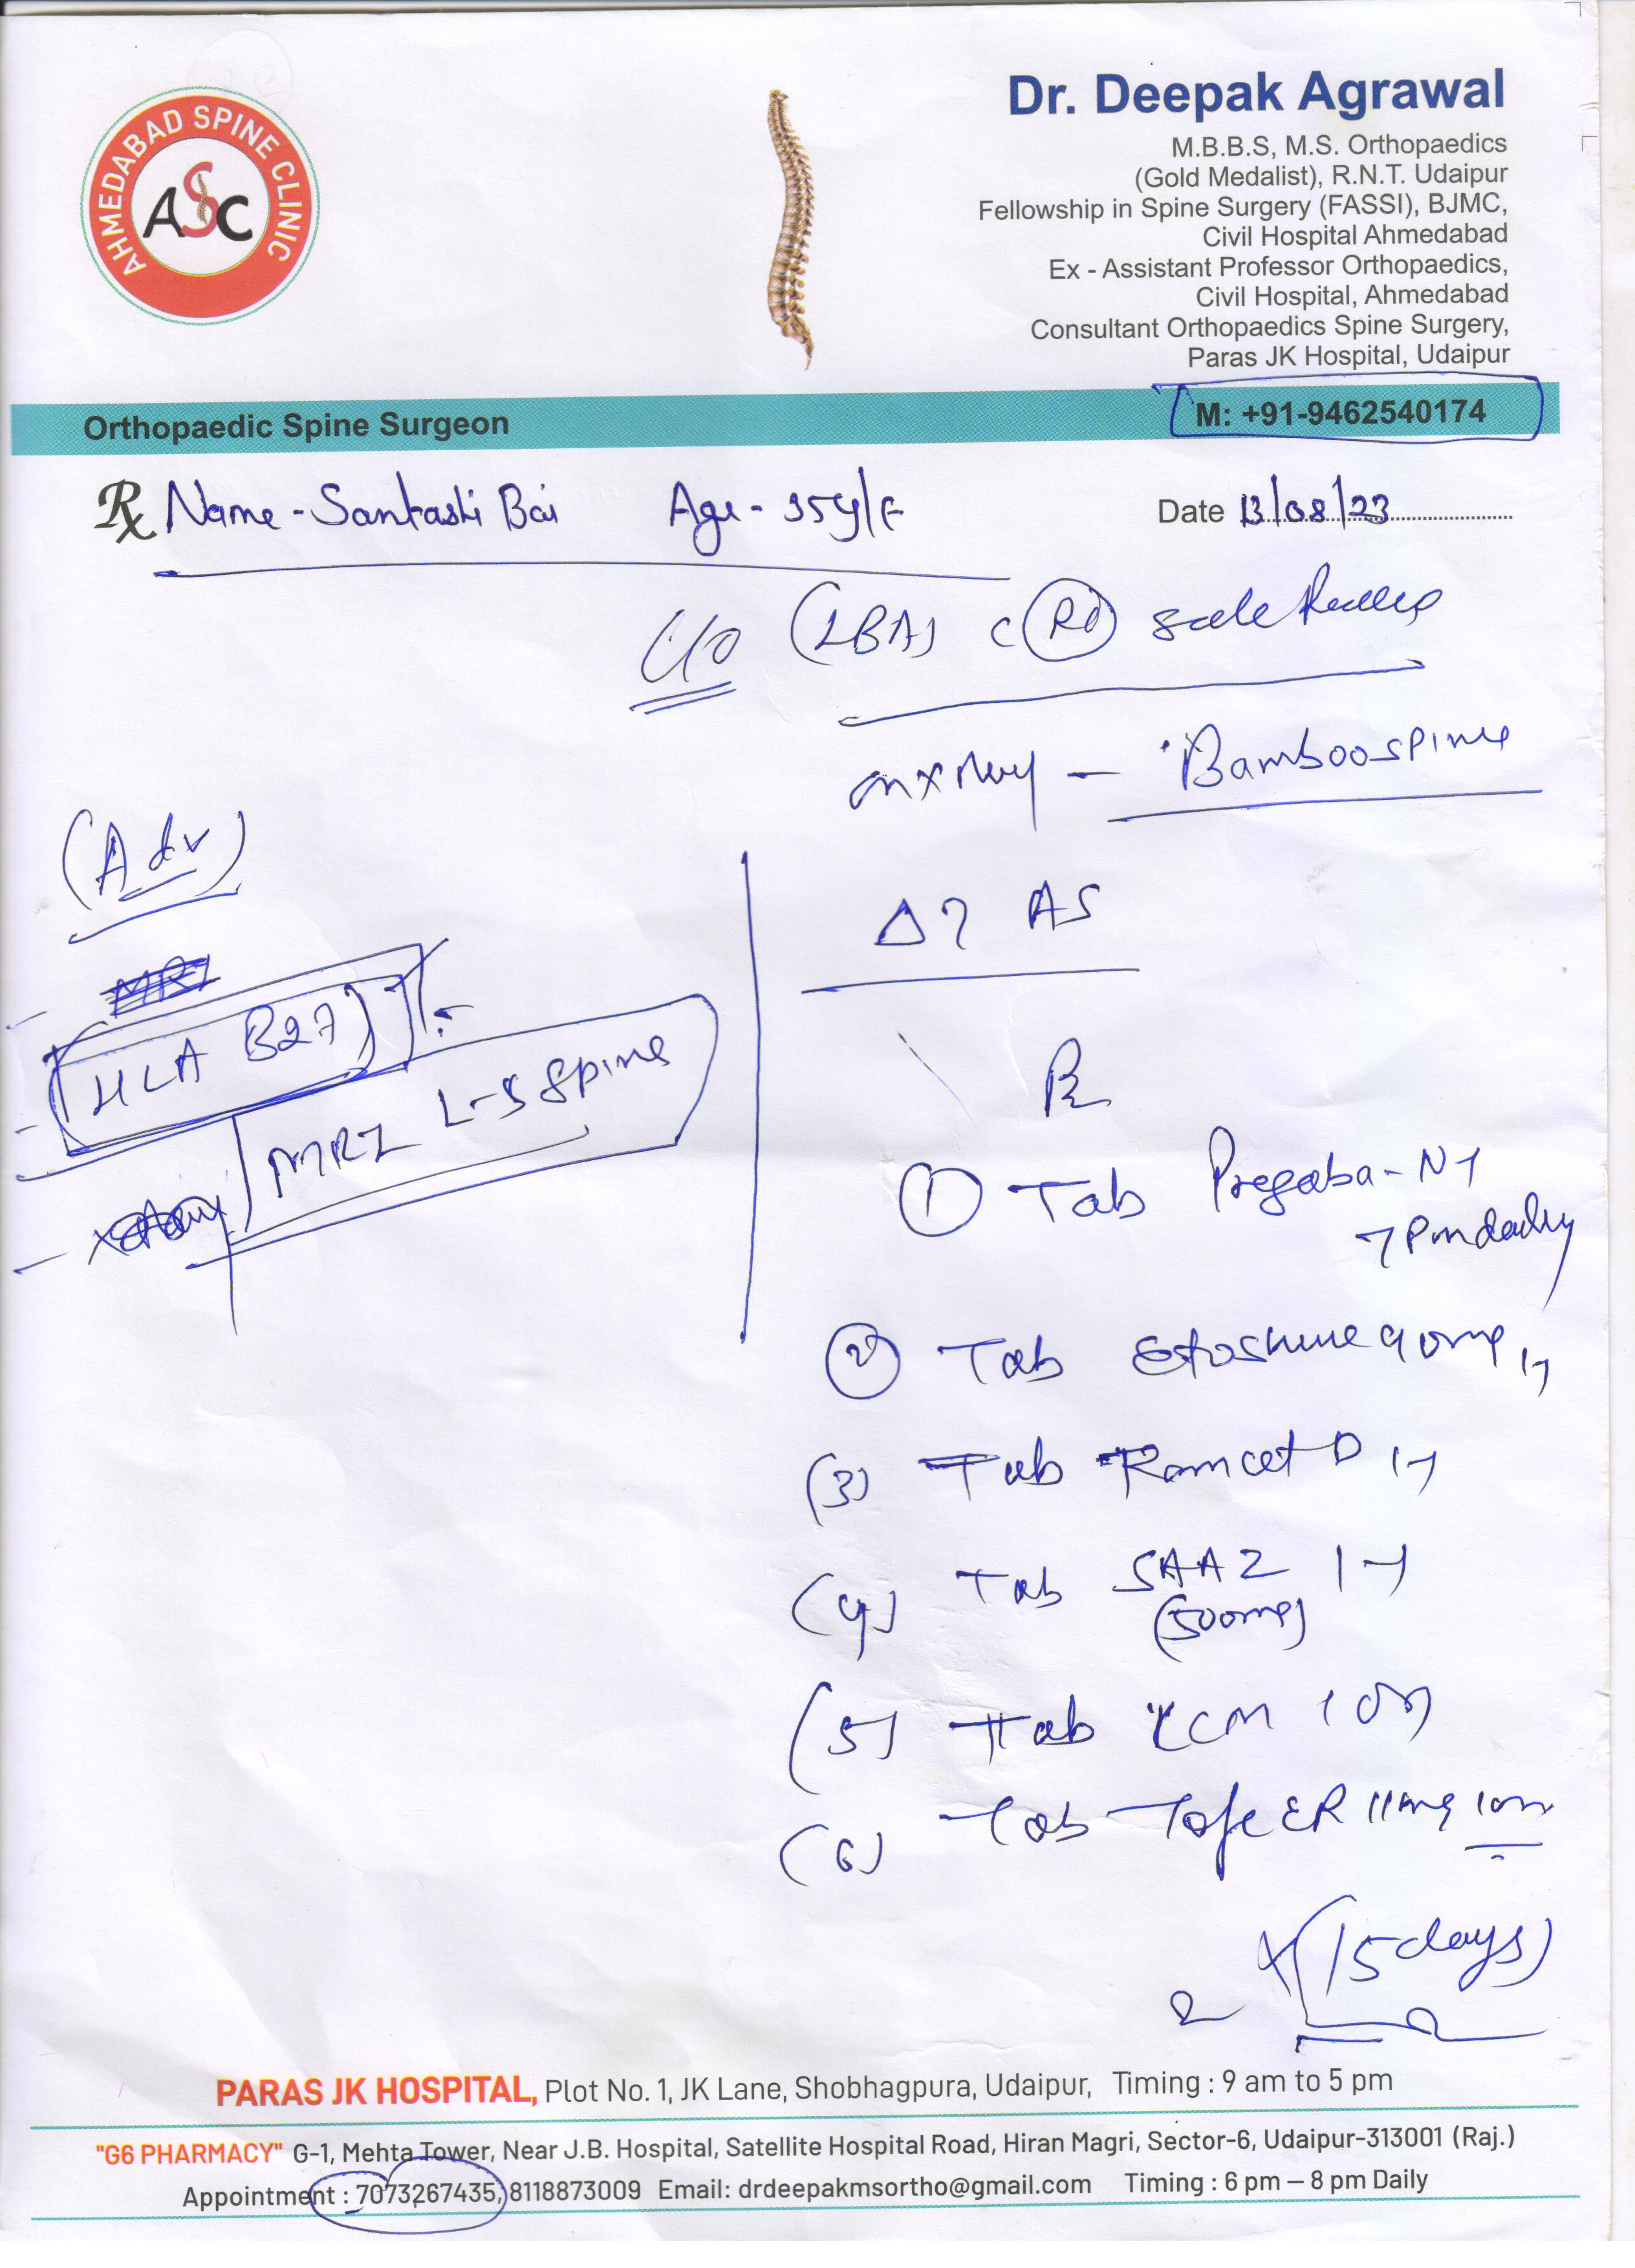 AHMEDABAD SPINE CLINIC
ASC
Dr. Deepak Agrawal
M.B.B.S, M.S. Orthopaedics
(Gold Medalist), R.N.T. Udaipur
Fellowship in Spine Surgery (FASSI), BJMC,
Civil Hospital Ahmedabad
Ex - Assistant Professor Orthopaedics,
Civil Hospital, Ahmedabad
Consultant Orthopaedics Spine Surgery,
Paras JK Hospital, Udaipur
Orthopaedic Spine Surgeon
M: +91-9462540174
Rx Name - Bai Age - 35y/F
Date 13/08/23
C/o (LBA) c Rt side
- Bamboo spine
(Adv)
Δ? AS
MRI
HLA B27)
MRI L-S Spine
Rx
① Tab Pregaba-NT
② Tab Etoshine 90mg
(3) Tab Ramcet D
(4) Tab SAAZ 1-1
(500mg)
(5) Tab CCM 1 OD
(6) Tab Tofe ER 11mg 1 OD
x (15 days)
PARAS JK HOSPITAL, Plot No. 1, JK Lane, Shobhagpura, Udaipur, Timing : 9 am to 5 pm
"G6 PHARMACY" G-1, Mehta Tower, Near J.B. Hospital, Satellite Hospital Road, Hiran Magri, Sector-6, Udaipur-313001 (Raj.)
Appointment : 7073267435, 8118873009 Email: drdeepakmsortho@gmail.com Timing : 6 pm – 8 pm Daily